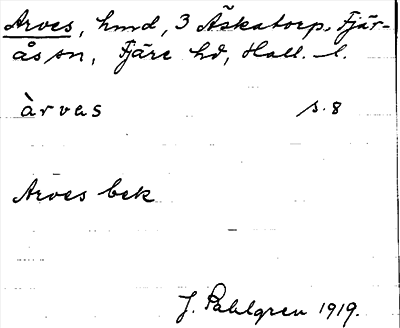 Arves, hmd, 3 Äskatorp, Fjär-
ås sn, Fjäre hd, Hall. l.
àrvas s. 8
Arves bek
J. Sahlgren 1919.